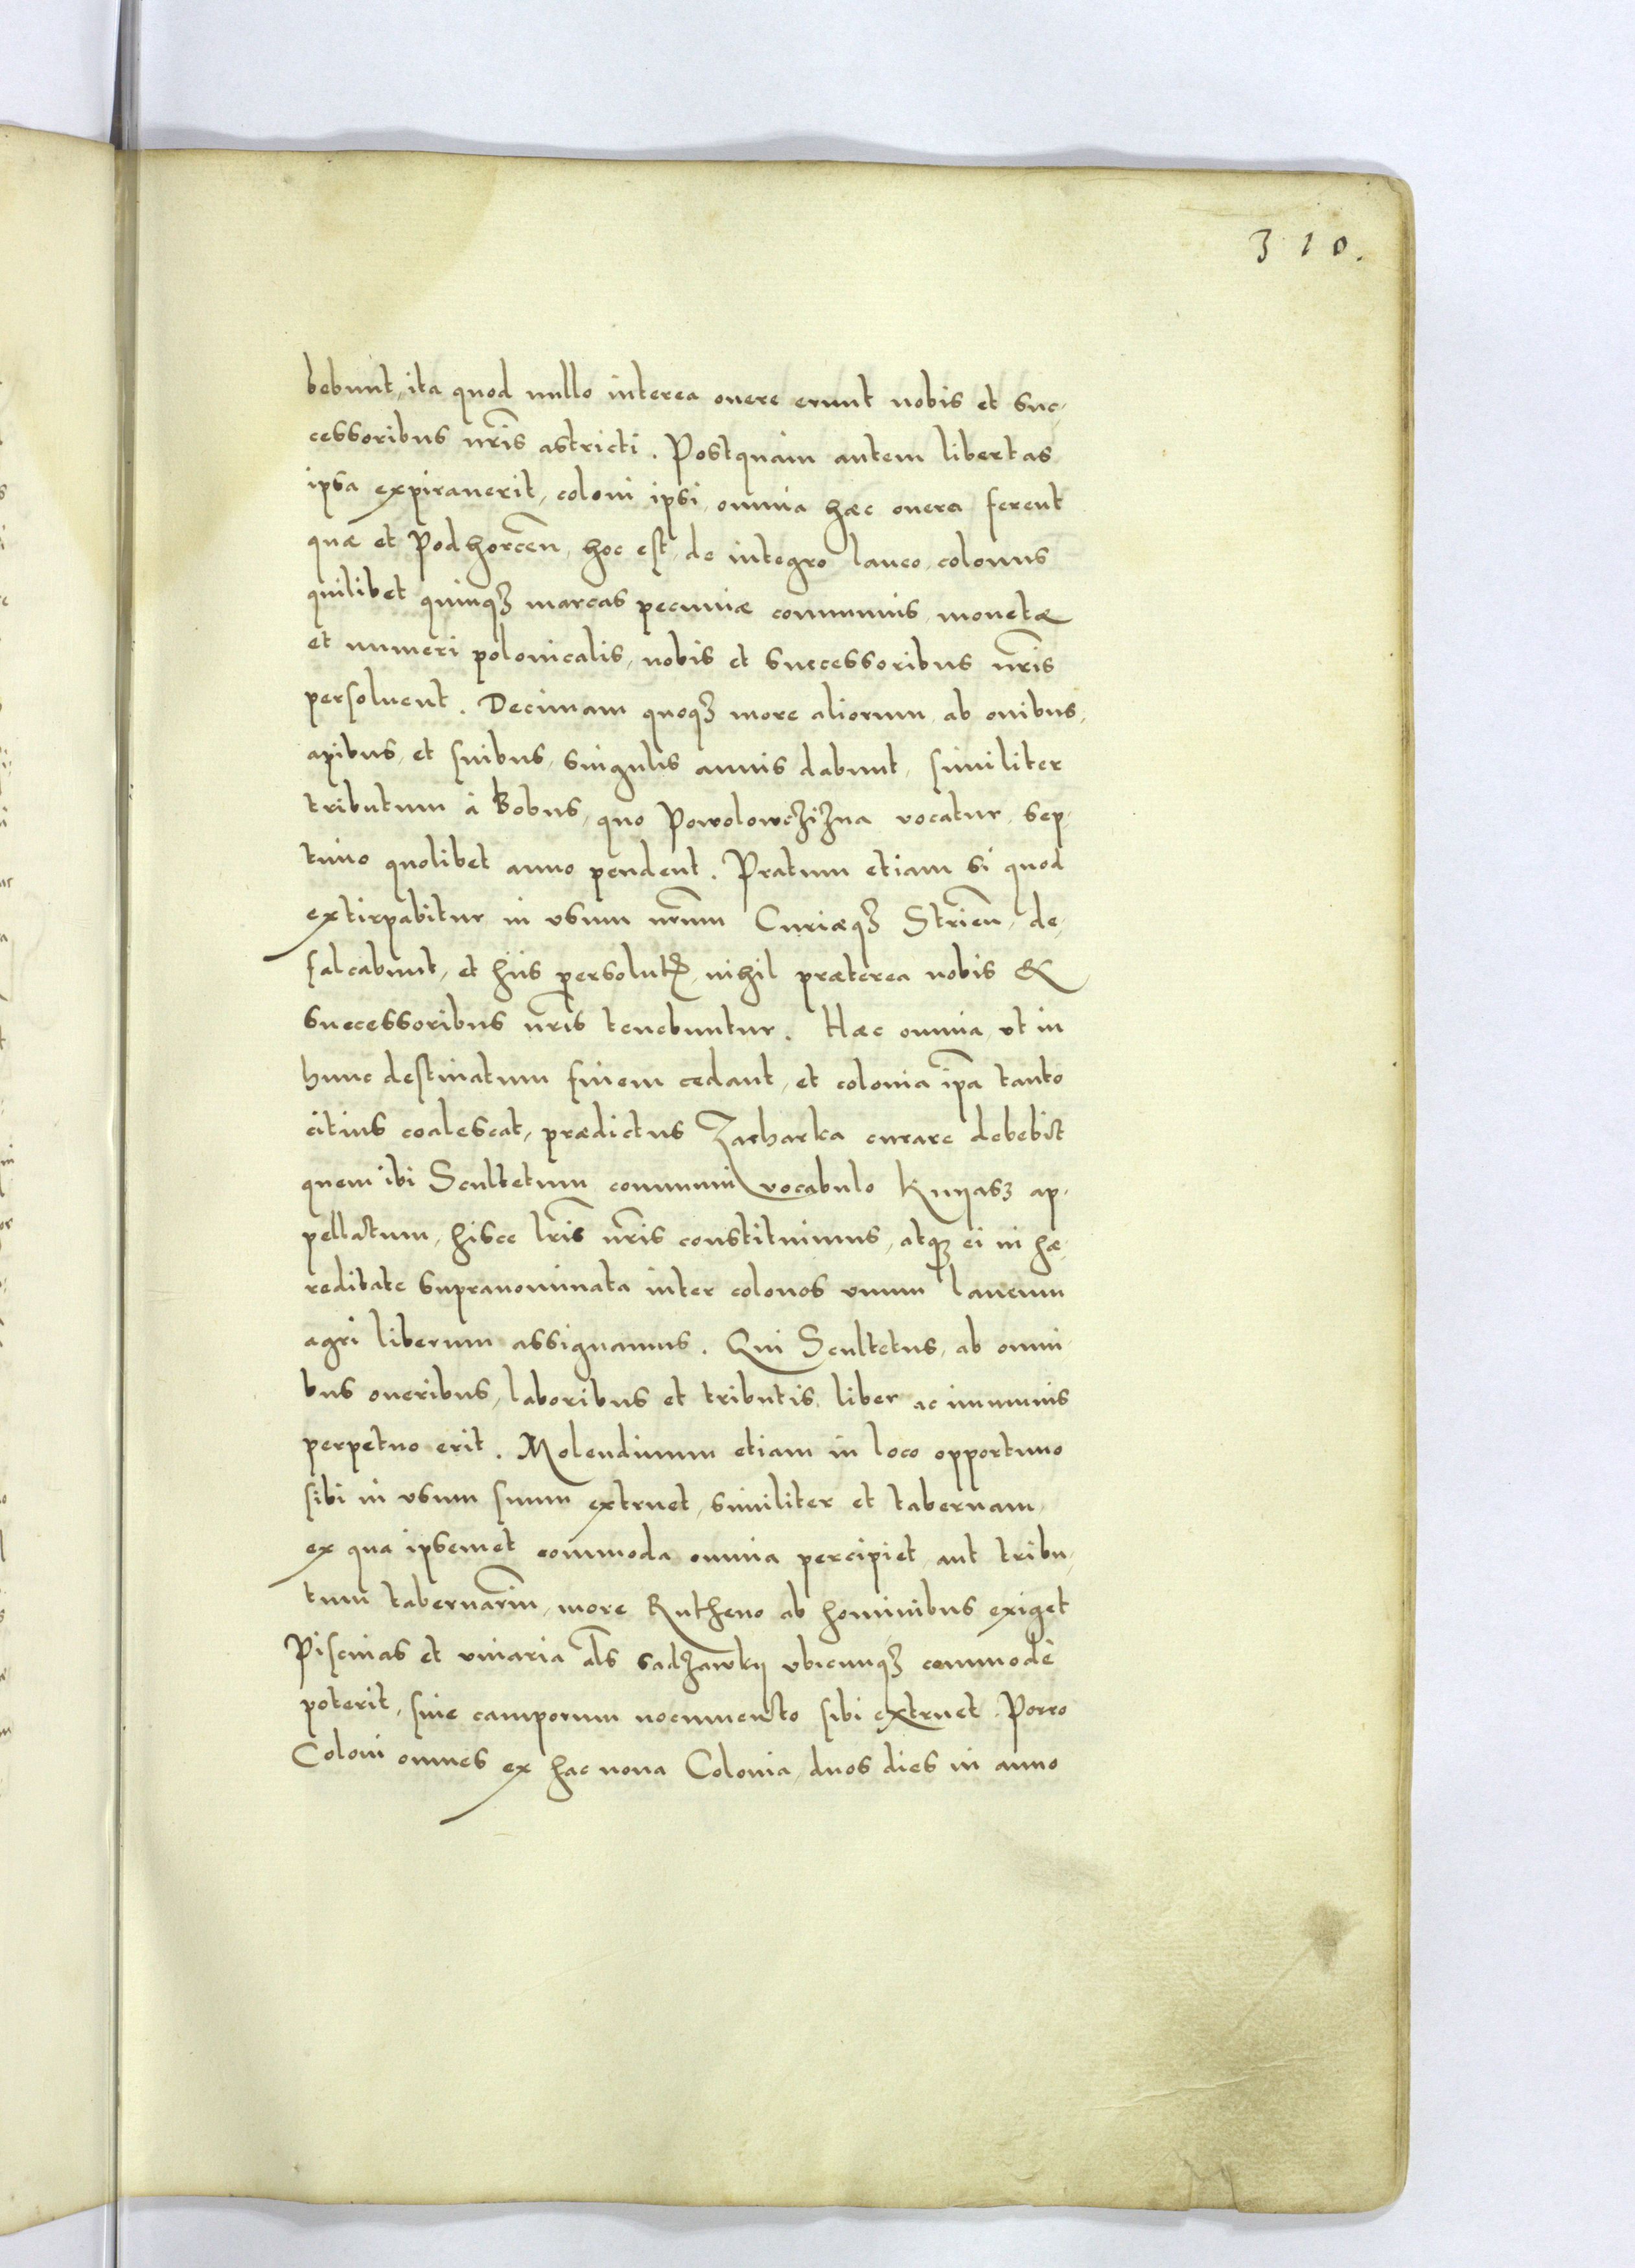 310.
bebunt, ita quod nullo interea onere erunt nobis et suc-
cessoribus nr̃is astricti. Postquam autem libertas
ipsa expirauerit, coloni ipsi, omnia hæc onera ferent
quæ et Podhorceñ, hoc est, de integro laneo, colonus
quilibet quinqȝ marcas pecuniæ communis, monetæ
et numeri polonicalis, nobis et successoribus nr̃is
persoluent. Decimam quoqȝ more aliorum, ab ouibus,
apibus, et suibus, singulis annis dabunt, similiter
tributum à bobus, quo Powolowczizna vocatur, sep-
timo quolibet anno pendent. Pratum etiam si quod
extirpabitur in vsum nr̃um Curiæqȝ Strień, de-
falcabunt, et hiis persolutꝭ, nihil præterea nobis &
successoribus nr̃is tenebuntur. Hæc omnia, vt in
hunc destinatum finem cedant, et colonia ip̃a tanto
citius coalescat, prædictus Zacharka curare debebit
quem ibi Scultetum communi vocabulo Knyasz ap-
pellatum, hisce lr̃is nr̃is constituimus, atqȝ ei in hæ-
reditate supranominata inter colonos vnum laneum
agri liberum assignamus. Qui Scultetus, ab omni-
bus oneribus, laboribus et tributis, liber ac immunis
perpetuo erit. Molendinum etiam in loco opportuno
sibi in vsum suum extruet, similiter et tabernam,
ex qua ipsemet commoda omnia percipiet aut tribu-
tum tabernariũ, more Rutheno ab hominibus exiget
Piscinas et viuaria al̃s sadzawky vbicunqȝ commodè
poterit, sine camporum nocumento sibi extruet. Porro
Coloni omnes ex hac noua Colonia, duos dies in anno